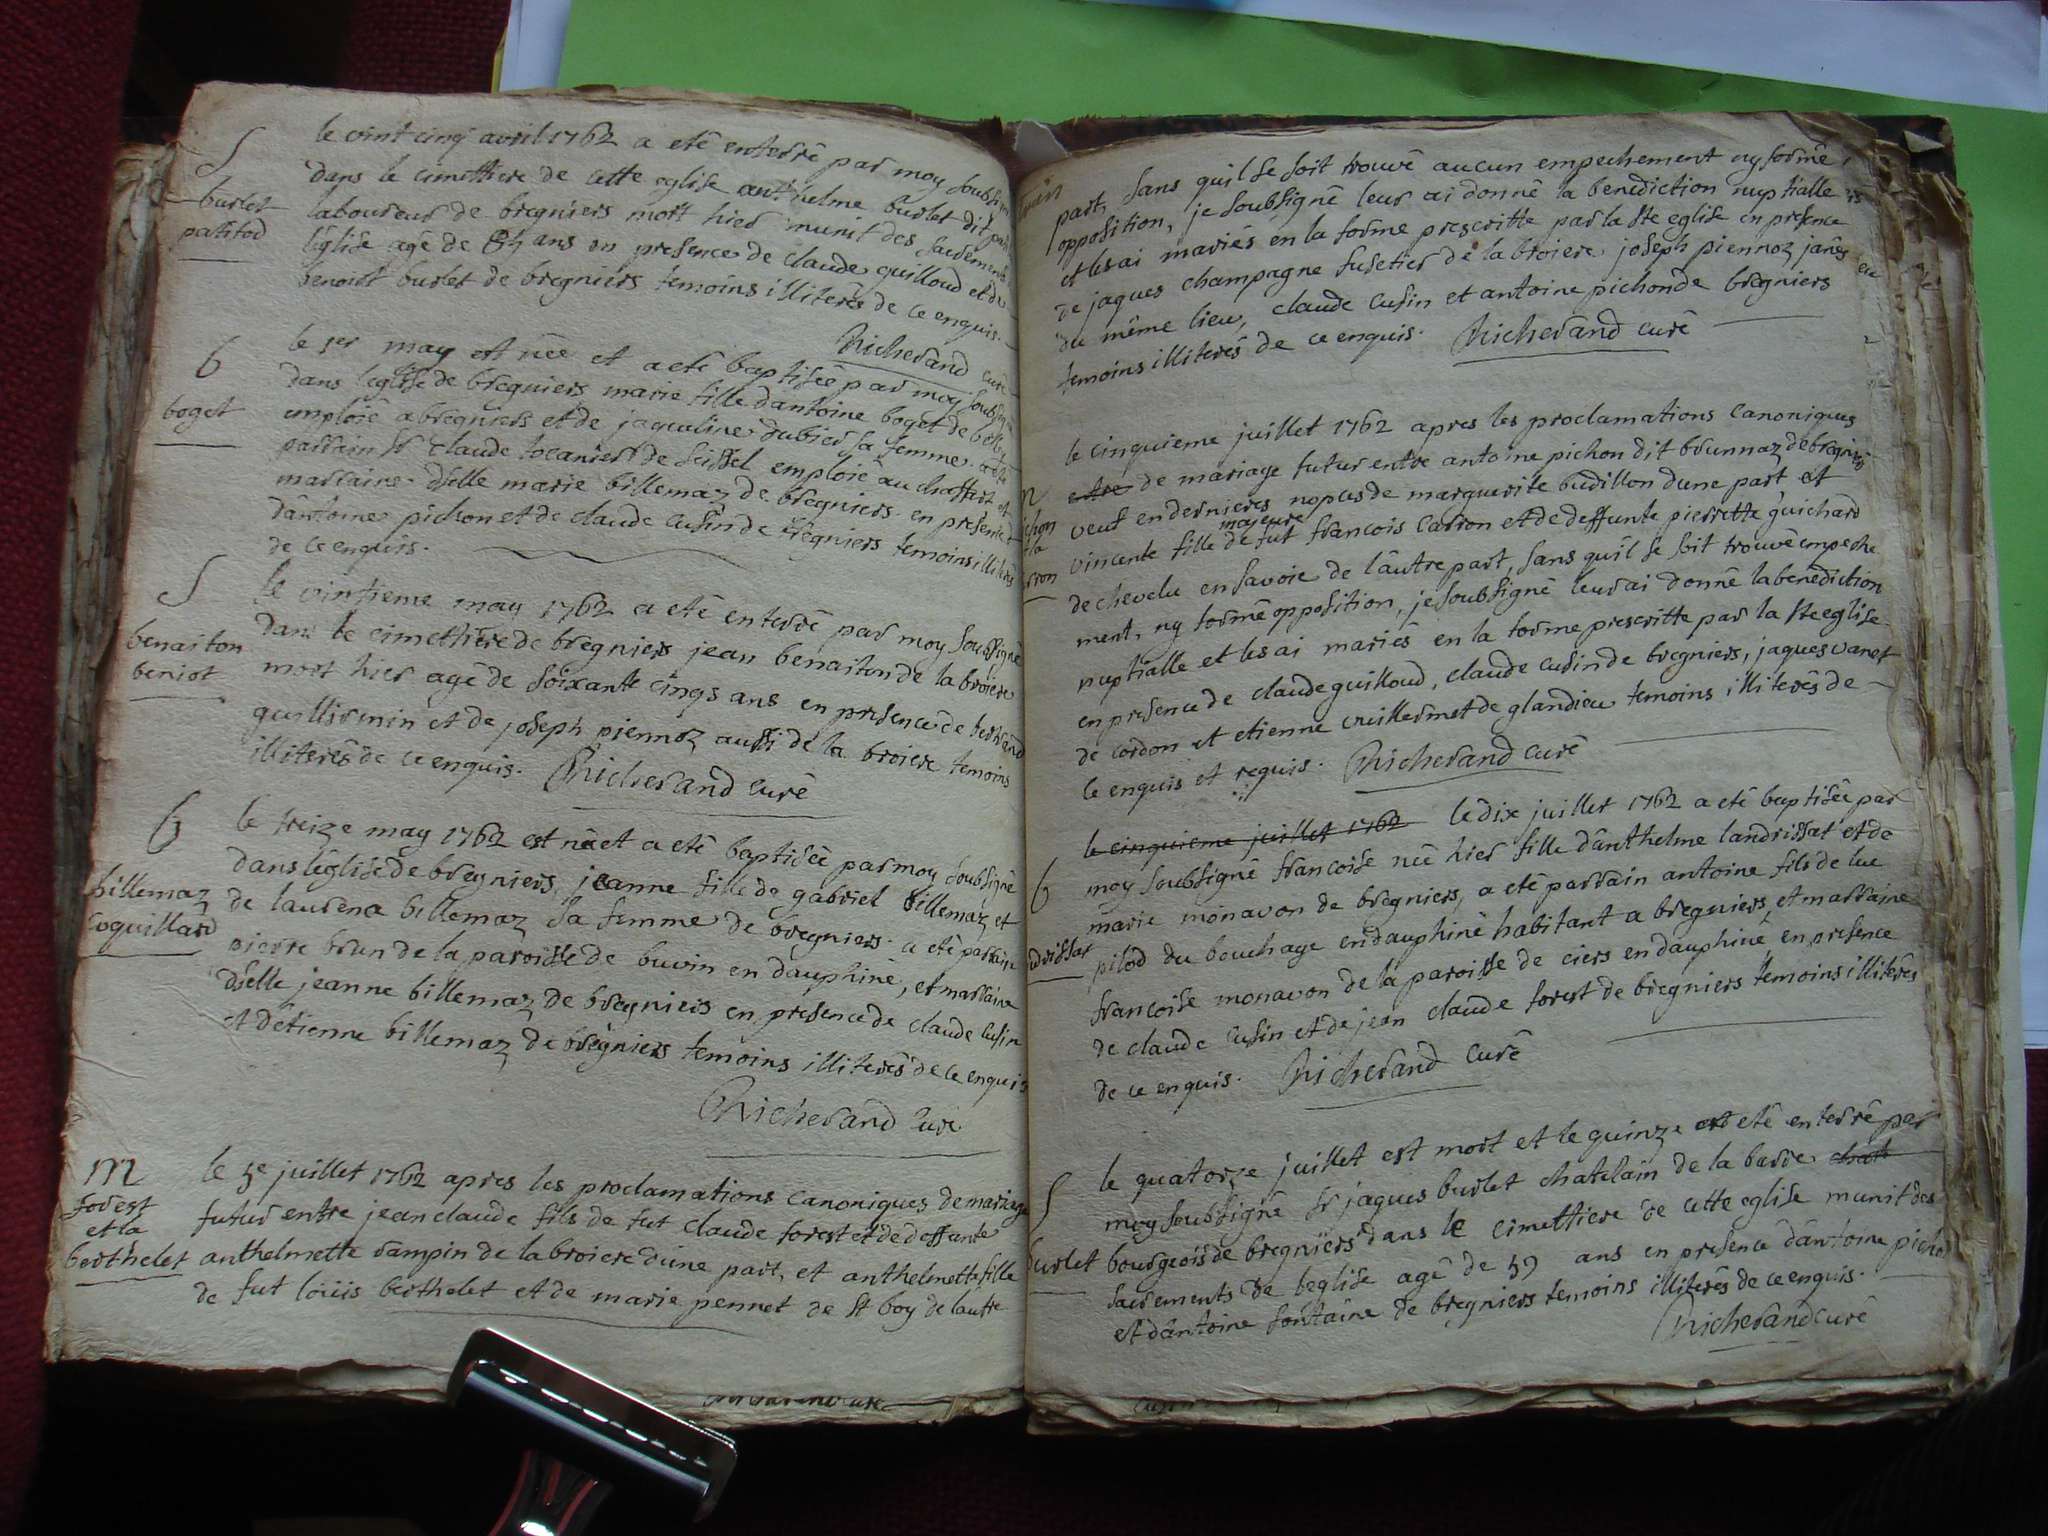 S
burlet
patitod
le vint cinq avril 1762 a eté enterré par moy soubsigné
dans le cimettiere de cette eglise anthelme burlet dit
laboureur de bregniers mort hier munit des sacrements
léglise agé de ans en presence de claude guilloud et de
benoist burlet de bregniers temoins illiterés de ce enquis.
Richerand curé
b
boget
le 1er may est née et a eté baptisée par moy soubsigné
dans leglise de bregniers marie fille dantoine boget de
emploié a bregniers et de jaqueline dubier sa femme. a été
parrain Sr claude tocanier de seissel emploié au et
marraine dselle marie billemaz de bregniers. en presence
dantoine pichon et de claude cusin de bregniers temoins illiterés
de ce enquis.
S
benaiton
beniot
le vintieme may 1762 a eté enterré par moy soubsigné
dans le cimettière de bregniers jean benaiton de la broiere
mort hier agé de soixante cinqs ans en presence de bertrand
guillermin et de joseph piennoz aussi de la broiere temoins
illiterés de ce enquis. Richerand curé
b
billemaz
coquillard
le treize may 1762 est née et a eté baptisée par moy soubsigné
dans léglise de bregniers, jeanne fille de gabriel billemaz et
de laurena billemaz sa femme de bregniers. a eté parrain
pierre brun de la paroisse de buvin en dauphiné, et marraine
dselle jeanne billemaz de bregniers en presence de claude cusin
et détienne billemaz de brégniers temoins illiterés de ce enquis
Richerand curé
m
forest
et la
berthelet
le 5e juillet 1762 apres les proclamations canoniques de mariage
futur entre jean claude fils de fut claude forest et de deffunte
anthelmette rampin de la broiere dune part, et anthelmette fille
de fut loüis berthelet et de marie pennet de st boy de lautre
part, sans quil se soit trouvé aucun empechement ny formé
opposition, je soubsigné leur ai donné la benediction nuptialle
et les ai mariés en la forme prescritte par la ste eglise en presence
de jaques champagne fusetier de la broiere joseph piennoz janes
du même lieu, claude cusin et antoine pichon de bregniers
temoins illiterés de ce enquis. Richerand curé
m
pichon
et la
carron
le cinquieme juillet 1762 apres les proclamations canoniques
entre de mariage futur entre antoine pichon dit brunnaz de bregniers
veuf en dernieres nopces de marguerite budillon dune part et
vincente fille majeure de fut francois carron et de deffunte pierrette guichard
de chevelu en savoie de lautre part, sans quil se soit trouvé empeche
ment, ny formé opposition, je soubsigné leur ai donné la benediction
nuptialle et les ai mariés en la forme prescritte par la ste eglise.
en presence de claude guilloud, claude cusin de bregniers, jaques vanet
de cordon et etienne cuillermet de glandieu temoins illiterés de
ce enquis et requis. Richerand curé
b
landrissat
le cinquieme juillet 1762 le dix juillet 1762 a eté baptisée par
moy soubsigné francoise née hier fille danthelme landrissat et de
marie monavon de bregniers, a eté parrain antoine fils de luc
pilod du bouchage en dauphiné habitant a bregniers, et marraine
francoise monavon de la paroisse de ciers en dauphiné en presence
de claude cusin et de jean claude forest de bregniers temoins illiterés
de ce enquis. Richerand curé
S
burlet
le quatorze juillet est mort et le quinze eté enterré par
moy soubsigné sr jaques burlet chatelain de la barre
bourgeois de bregniers dans le cimettiere de cette eglise munit des
sacrements de leglise agé de 59 ans en presence dantoine pichon
et dantoine fontaine de bregniers temoins illiterés de ce enquis.
Richerand curé